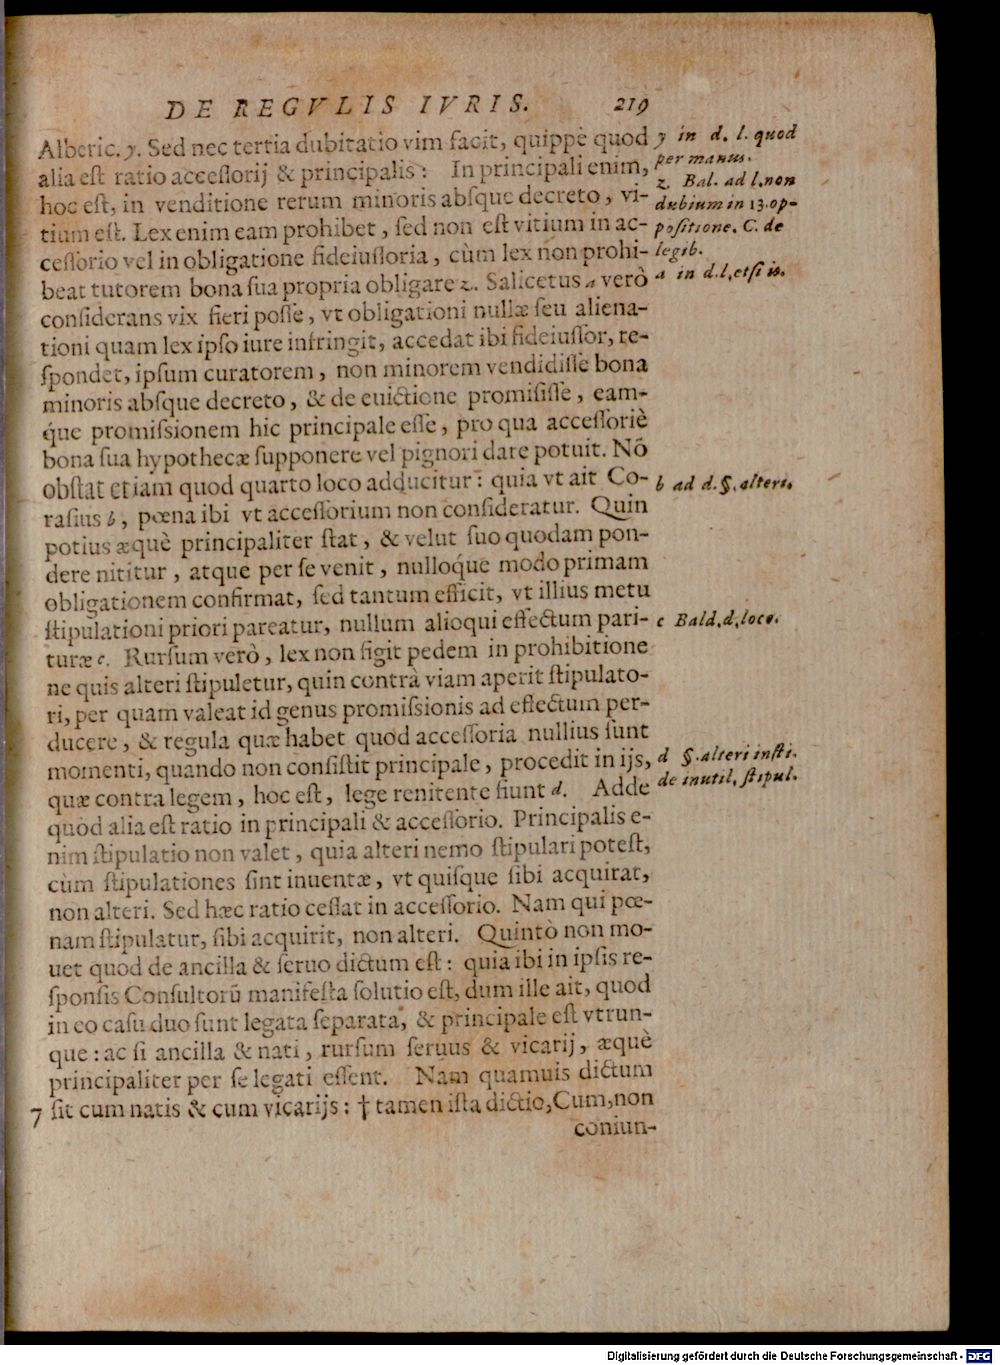 DE REGVLIS IVRIS. 219
Alberic. y. Sed nec tertia dubitatio vim facit, quippè quod
alia eſt ratio acceſſorij & principalis: In principali enim,
hoc eſt, in venditione rerum minoris abſque decreto, vi-
tium eſt. Lex enim eam prohibet, ſed non eſt vitium in ac-
ceſſorio vel in obligatione fideiuſſoria, cùm lex non prohi-
beat tutorem bona ſua propria obligare z. Salicetus a verò
conſiderans vix fieri poſſe, vt obligationi nullæ ſeu aliena-
tioni quam lex ipſo iure infringit, accedat ibi fideiuſſor, re-
ſpondet, ipſum curatorem, non minorem vendidiſſe bona
minoris abſque decreto, & de euictione promiſiſſe, eam-
q́ue promiſsionem hic principale eſſe, pro qua acceſſoriè
bona ſua hypothecæ ſupponere vel pignori dare potuit. Nõ
obſtat etiam quod quarto loco adducitur: quia vt ait Co-
raſius b, pœna ibi vt acceſſorium non conſideratur. Quin
potius æquè principaliter ſtat, & velut ſuo quodam pon-
dere nititur, atque per ſe venit, nulloq́ue modo primam
obligationem confirmat, ſed tantum efficit, vt illius metu
ſtipulationi priori pareatur, nullum alioqui effectum pari-
turæ c. Rurſum verò, lex non figit pedem in prohibitione
ne quis alteri ſtipuletur, quin contrà viam aperit ſtipulato-
ri, per quam valeat id genus promiſsionis ad effectum per-
ducere, & regula quæ habet quod acceſſoria nullius ſunt
momenti, quando non conſiſtit principale, procedit in ijs,
quæ contra legem, hoc eſt, lege renitente fiunt d. Adde
quòd alia eſt ratio in principali & acceſſorio. Principalis e-
nim ſtipulatio non valet, quia alteri nemo ſtipulari poteſt,
cùm ſtipulationes ſint inuentæ, vt quiſque ſibi acquirat,
non alteri. Sed hæc ratio ceſſat in acceſſorio. Nam qui pœ-
nam ſtipulatur, ſibi acquirit, non alteri. Quintò non mo-
uet quod de ancilla & ſeruo dictum eſt: quia ibi in ipſis re-
ſponſis Conſultorũ manifeſta ſolutio eſt, dum ille ait, quod
in eo caſu duo ſunt legata ſeparata, & principale eſt vtrun-
que: ac ſi ancilla & nati, rurſum ſeruus & vicarij, æquè
principaliter per ſe legati eſſent. Nam quamuis dictum
7 ſit cum natis & cum vicarijs: † tamen iſta dictio, Cum, non
coniun-
y in d. l. quod
per manus.
z. Bal. ad l. non
dubium in 13. op-
poſitione. C. de
legib.
a in d. l. etſi is.
b ad d. §. alteri.
c Bald. d. loco.
d §. alteri inſti.
de inutil. ſtipul.
Digitalisierung gefördert durch die Deutsche Forschungsgemeinschaft - DFG